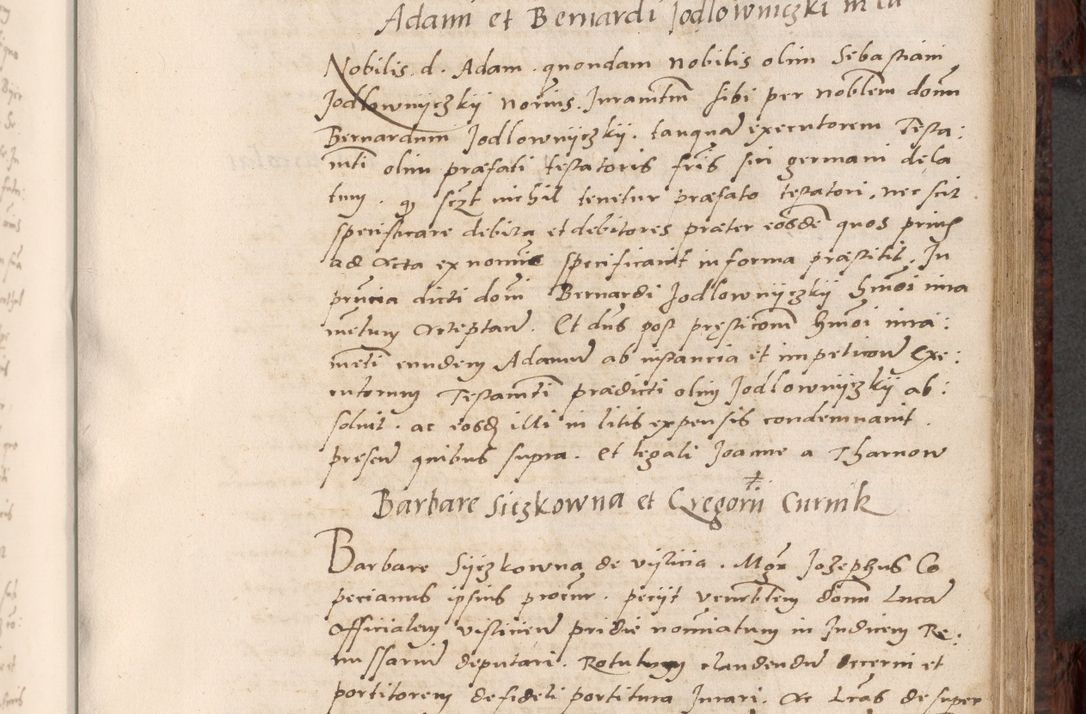 Adami et Bernardi Jodlowniczki
Nobilis d. Adam quondam nobilis olim Sebastiani
Jodlownyczkij Juramtm sibi per noblem domn
Bernardum Jodlownyczkij tanqua executorem Testa:
mti olim præfati testatoris fris sui germani dela
tum. nichil tenetur præfato testatori, nec scit
specificare debita et debitores præter eosde quos prius
ad Acta specificavit in forma præstitit. In
pruncia dicti domi Bernardi Jodlownyczkij hmoi iura
mentum Acceptan. Et dns post hmoi iura:
meti eundem Adamum ab instancia et impeticon Exe:
cutorum Testamti prædicti olim Jodlownyczkij ab:
soluit. ac eosd illi in litis expensis condemnauit.
presen quibus supra. Et legali Joanne a Tharnow
Barbare Siczkowna et Gregorii Curnik
Barbare Syczkowna de vislicia. Mgr Josephus Co
pecianus ipsius procur. peciit venrblem domn Luca
Officialem vislicien pridie nominatum in Judicem Re:
missarium deputari. Rotulum claudendum decerni et
portitorem de fideli portitura Jurari. Ac Lras desuper